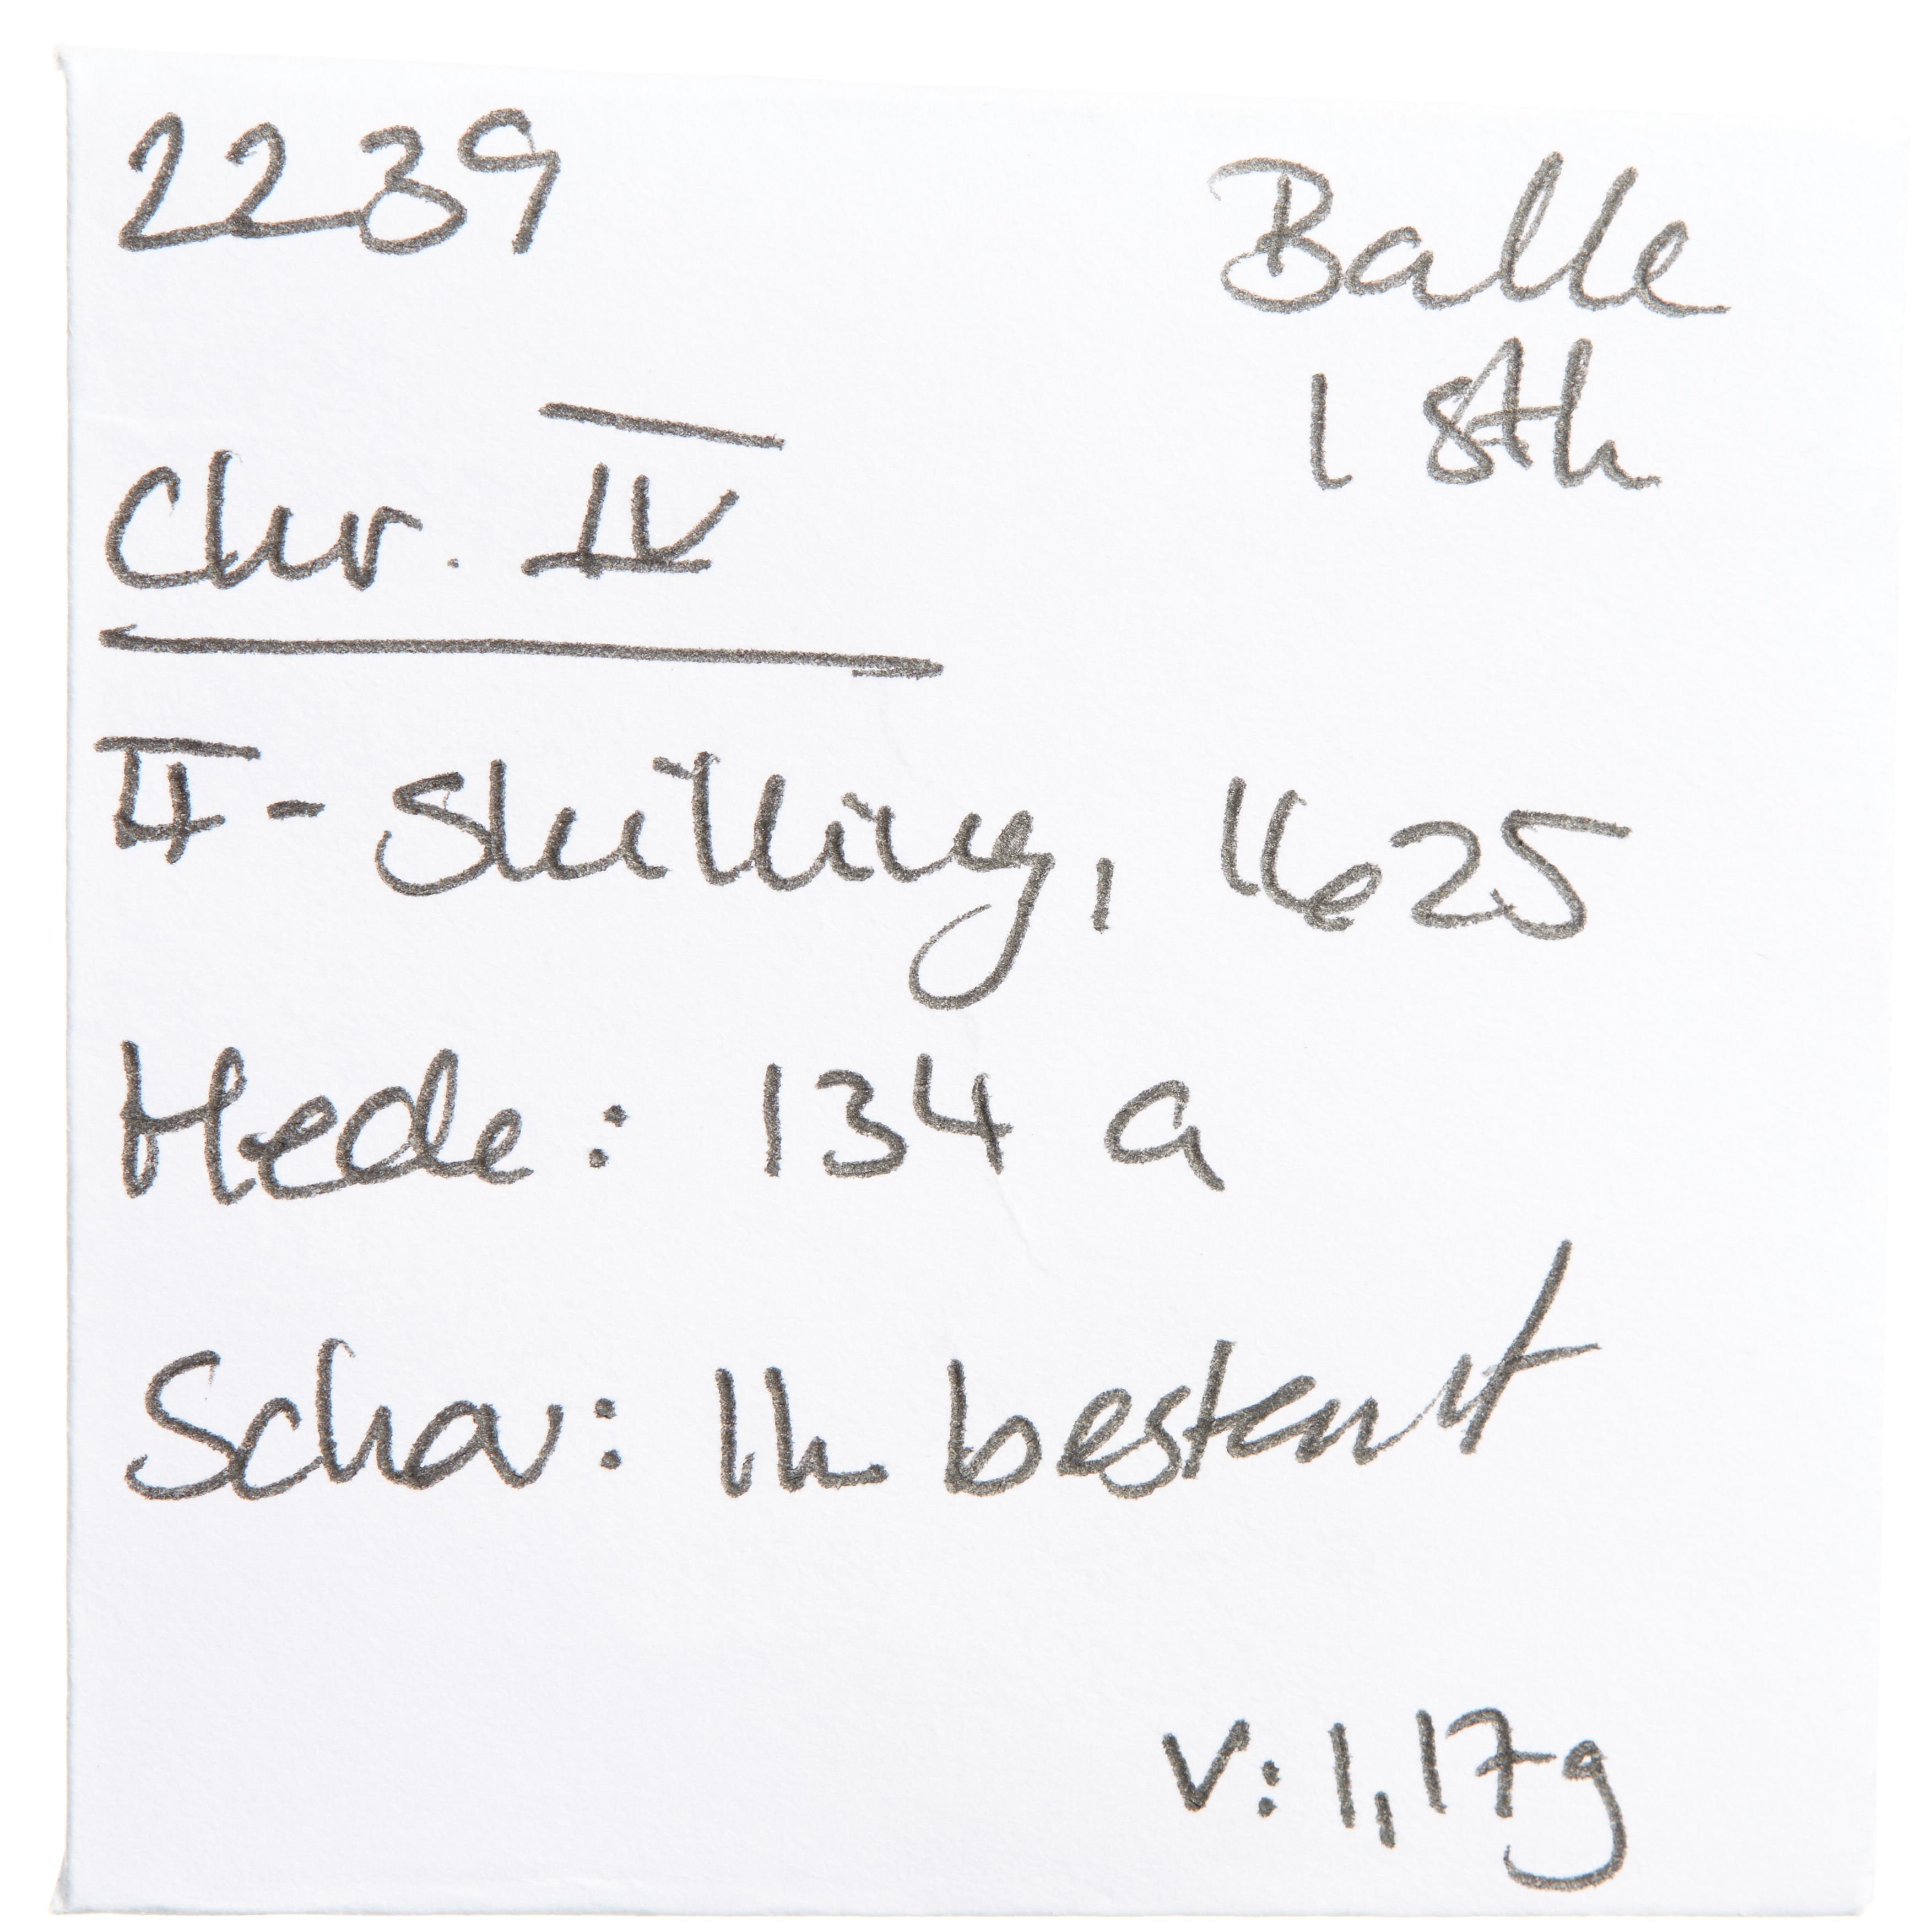 2239
Balle
1 stk
Chr. IV
II - Skilling, 1625
Hede: 134 a
Schou: Ik bestemt
V: 1,17g